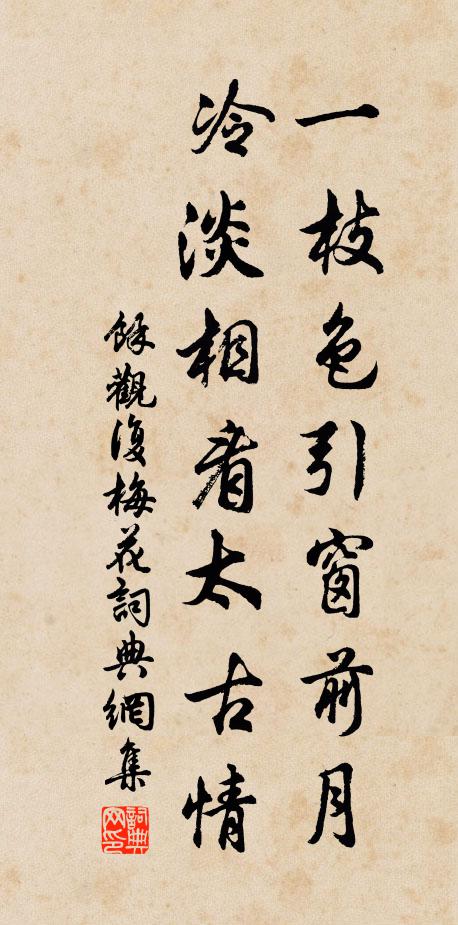 一枝色引窗前月
冷淡相看太古情
餘觀復梅花詞典網集
詞典網印